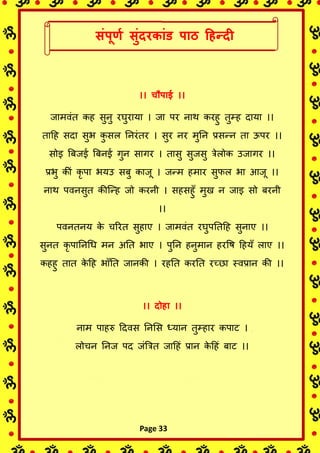 संपूर्ण सुंदरकांड पाठ हिन्दी
।। चौपाई ।।
जामवंत कह सुनु रघुराया । जा पर नाथ करहु तुम्ह दाया ।।
ताहि सदा सुभ कुसल निरंतर । सुर नर मुनि प्रसन्न ता ऊपर ।।
सोइ बिजई बिनई गुन सागर । तासु सुजसु त्रेलोक उजागर ।।
प्रभु कीं कृपा भयउ सबु काजू । जन्म हमार सुफल भा आजू ।।
नाथ पवनसुत कीन्हि जो करनी । सहसहुँ मुख न जाइ सो बरनी
।।
पवनतनय के चरित सुहाए । जामवंत रघुपतिहि सुनाए ।।
सुनत कृपानिधि मन अति भाए । पुनि हनुमान हरषि हियँ लाए ।।
कहहु तात केहि भाँति जानकी । रहति करति रच्छा स्वप्रान की ।।
।। दोहा ।।
नाम पाहरु दिवस निसि ध्यान तुम्हार कपाट ।
लोचन निज पद जंत्रित जाहिं प्रान केहिं बाट ।।
Page 33